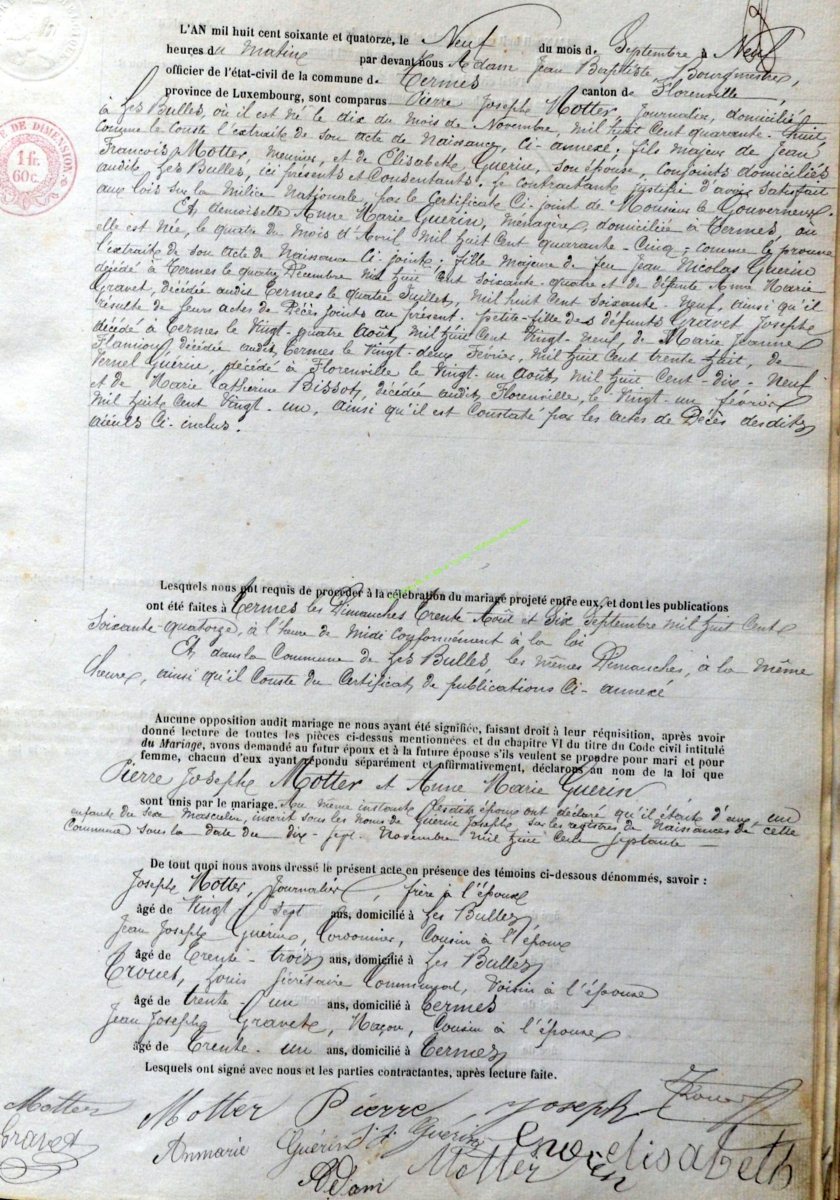 E DE DIMENSION.
1 fr.
60 c.
L'AN mil huit cent soixante et quatorze, le Neuf du mois de Septembre à Neuf
heures du matin par devant nous Adam Jean Baptiste Bourgmestre,
officier de l'état-civil de la commune de Termes canton de Florenville,
province de Luxembourg, sont comparus Pierre Joseph Motter, Journalier, domicilié
à Les Bulles, où il est né le dix du mois de Novembre, mil huit Cent quarante-huit
comme le Conste l'extrait de son acte de Naissance, Ci-annexé; fils majeur de Jean
François Motter, Meunier, et de Elisabeth Guerin, son épouse, conjoints domiciliés
audit Les Bulles, ici présents et Consentants. Le contractant justifie d'avoir satisfait
aux lois sur la Milice Nationale, par le Certificat Ci-joint de Monsieur le Gouverneur
Et demoiselle Anne Marie Guerin, Ménagère, domiciliée à Termes, où
elle est née, le quatre du mois d'Avril mil huit Cent quarante-Cinq; comme le prouve
l'extrait de son acte de Naissance Ci-joint; fille majeure de feu Jean Nicolas Guerin
décédé à Termes le quatre Décembre mil huit Cent Soixante-quatre et de défunte Anne Marie
Gravet, décédée audit Termes le quatre Juillet, mil huit Cent Soixante-Neuf, ainsi qu'il
résulte de leurs actes de Décès joints au présent. Petite-fille des défunts Gravet Joseph
décédé à Termes le Vingt-quatre Août, mil huit Cent Vingt-Neuf, de Marie Jeanne
Flamion, décédée audit Termes le Vingt-deux Février, mil huit Cent trente huit, de
Guérin, décédé à Florenville le Vingt-un Août, mil huit Cent-dix-Neuf
et de Marie Catherine Bissot, décédée audit Florenville, le Vingt-un février
mil huit Cent Vingt-un, ainsi qu'il est Constaté par les actes de Décès desdits
aïeuls Ci-inclus.
Lesquels nous ont requis de procéder à la célébration du mariage projeté entre eux, et dont les publications
ont été faites à Termes les Dimanches Trente Août et Six Septembre mil huit Cent
Soixante-quatorze, à l'heure de Midi conformément à la loi
Et dans la Commune de Les Bulles, les mêmes Dimanches, à la même
heure, ainsi qu'il Conste du Certificat de publications Ci-annexé
Aucune opposition audit mariage ne nous ayant été signifiée, faisant droit à leur réquisition, après avoir
donné lecture de toutes les pièces ci-dessus mentionnées et du chapitre VI du titre du Code civil intitulé
du Mariage, avons demandé au futur époux et à la future épouse s'ils veulent se prendre pour mari et pour
femme, chacun d'eux ayant répondu séparément et affirmativement, déclarons au nom de la loi que
Pierre Joseph Motter et Anne Marie Guerin
sont unis par le mariage. Au même instant lesdits époux ont déclaré qu'il était d'eux, un
enfant du sexe masculin, inscrit sous les noms de Guerin Joseph, sur les registres de Naissances de cette
Commune sous la date du dix-sept Novembre mil huit Cent Septante
De tout quoi nous avons dressé le présent acte en présence des témoins ci-dessous dénommés, savoir :
Joseph Motter, Journalier, frère à l'époux
âgé de Vingt Sept ans, domicilié à Les Bulles
Jean Joseph Guérin, Cordonnier, Cousin à l'époux
âgé de Trente-trois ans, domicilié à Les Bulles
Trouet, Louis Sécrétaire Communal, Voisin à l'épouse
âgé de trente-un ans, domicilié à Termes
Jean Joseph Gravet, Maçon, Cousin à l'épouse
âgé de Trente-un ans, domicilié à Termes
Lesquels ont signé avec nous et les parties contractantes, après lecture faite.
Motter Motter Pierre Joseph Trouet
Gravet Annmarie Guérin J. J. Guerin elisabeth
Adam Motter